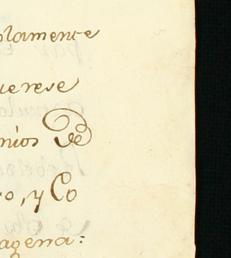 plamente
uerese
nios De
ro, y Co
agena: